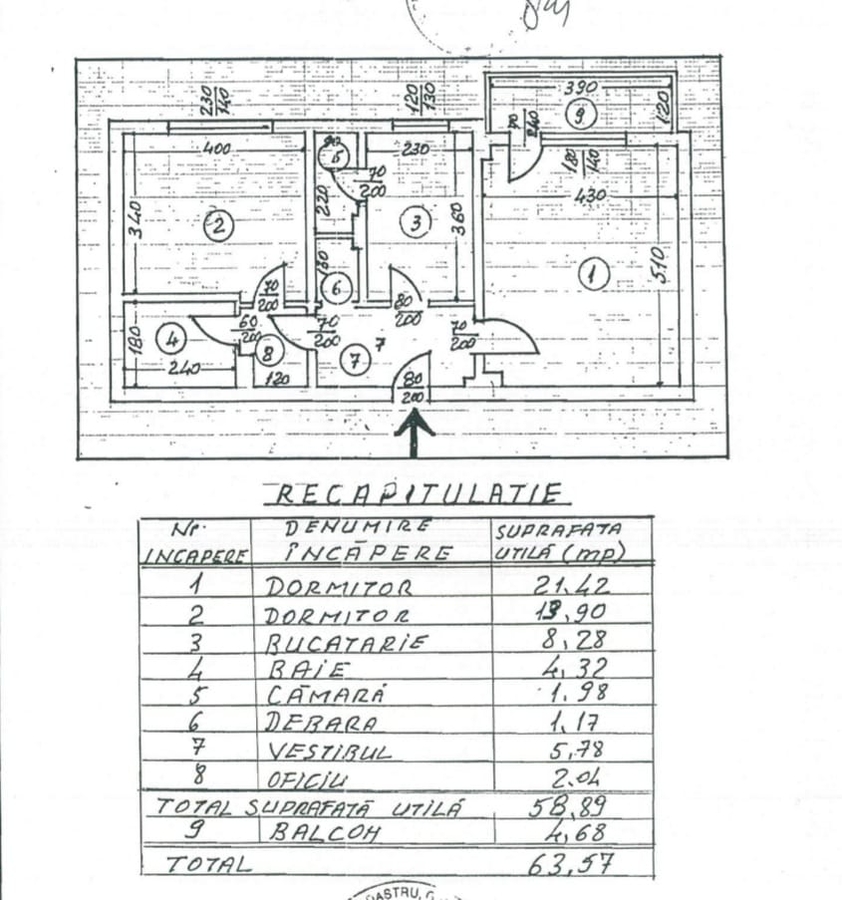 230
140
120
130
390
9
120
70
240
400
90
5
230
180
140
70
200
430
340
2
220
3
360
130
6
1
510
70
200
80
200
180
4
60
200
8
70
200
7
7
70
200
240
120
80
200
RECAPITULATIE
Nr. INCAPERE DENUMIRE ÎNCĂPERE SUPRAFATA UTILĂ (mp)
1 DORMITOR 21.42
2 DORMITOR 13,90
3 BUCATARIE 8,28
4 BAIE 4,32
5 CĂMARĂ 1.98
6 DEBARA 1,17
7 VESTIBUL 5,78
8 OFICIU 2.04
TOTAL SUPRAFATĂ UTILĂ 58,89
9 BALCOH 4,68
TOTAL 63,57